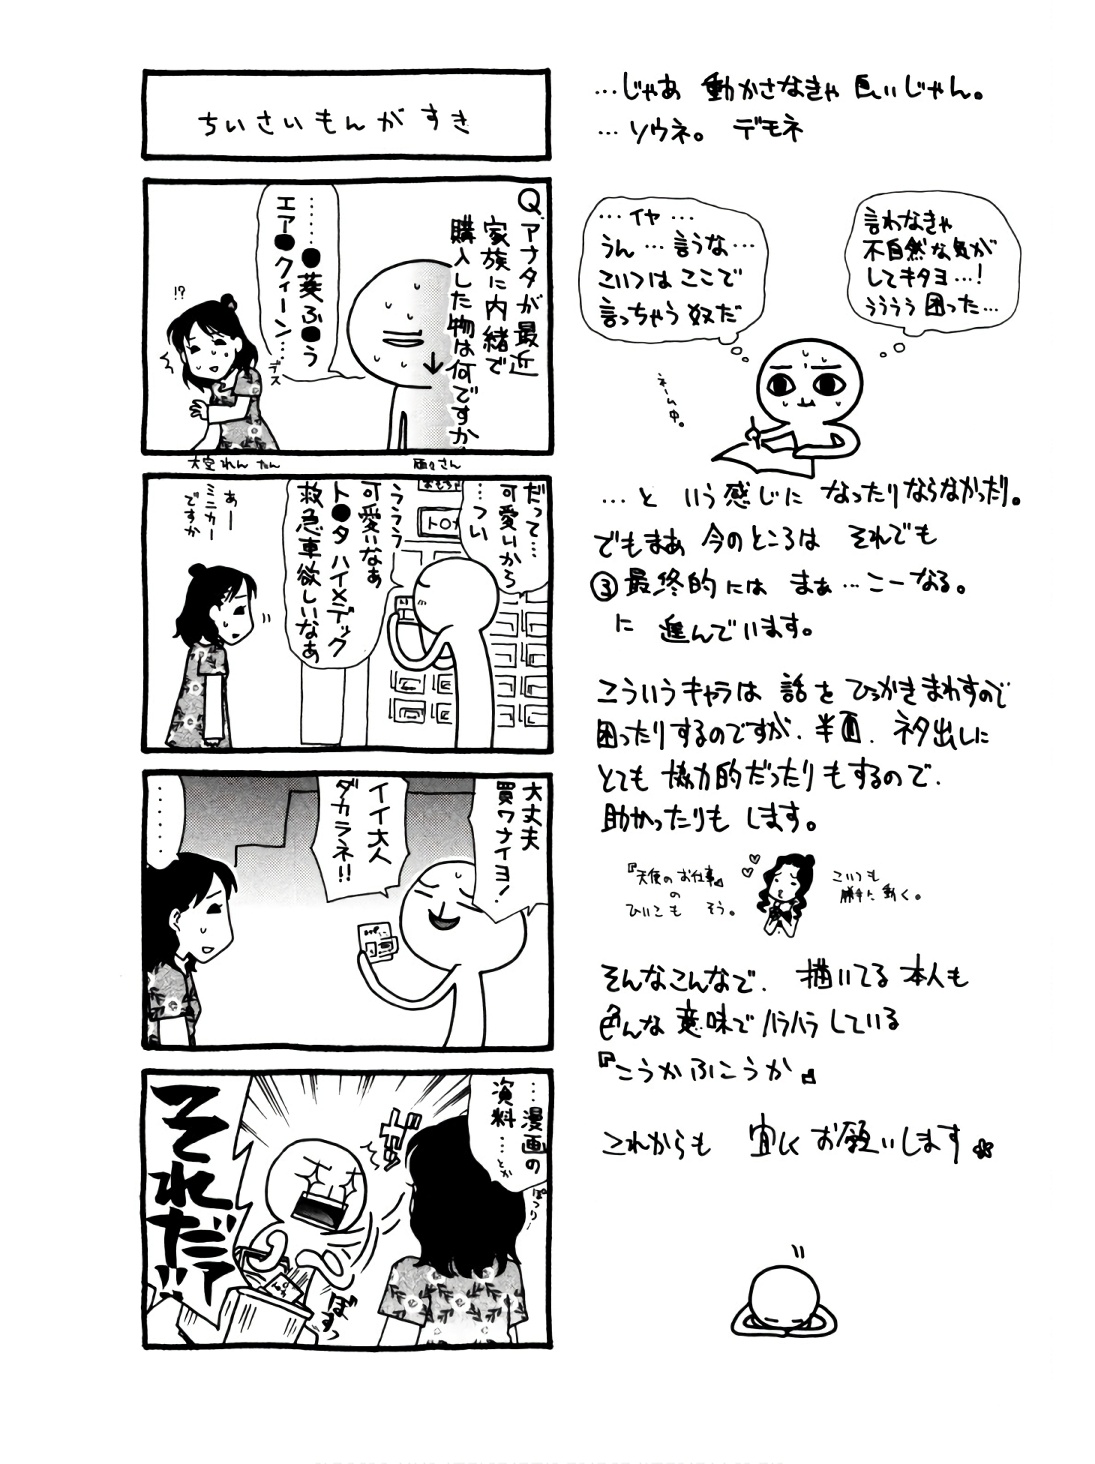 ちいさいもんがすき
Q.アナタが最近
家族に内緒で
購入した物は何ですか
↓
………●葵ふ●う
エア●クィーン…
デス
!?
大空れんたん
だって…
可愛いから
…つい
おもちゃ
ううう
可愛いなぁ
ト●タ ハイメディック
救急車欲しいなぁ
あー
ミニカー
ですか
大丈夫
買ワナイヨ!
イイ大人
ダカラネ!!
……
…漫画の
資料…とか
ぽつり…
それだァ!!
…じゃあ 動かさなきゃ 良いじゃん。
…ソウネ。 デモネ
言わなきゃ
不自然な気が
してキタヨ…!
うううう 困った…
…イヤ…
うん…言うな…
こいつは ここで
言っちゃう 奴だ
ネーム中。
…と いう感じに なったりならなかったり。
でもまぁ 今のところは それでも
③最終的には まぁ…こーなる。
に 進んでいます。
こういうキャラは 話を ひっかきまわすので
困ったりするのですが、半面、ネタ出しに
とても 協力的だったりもするので、
助かったりも します。
『天使のお仕事』
の
ひいこも そう。
こいつも
勝手に動く。
そんなこんなで、 描いてる 本人も
色んな 意味で ハラハラ している
『こうかふこうか』
これからも 宜しく お願いします